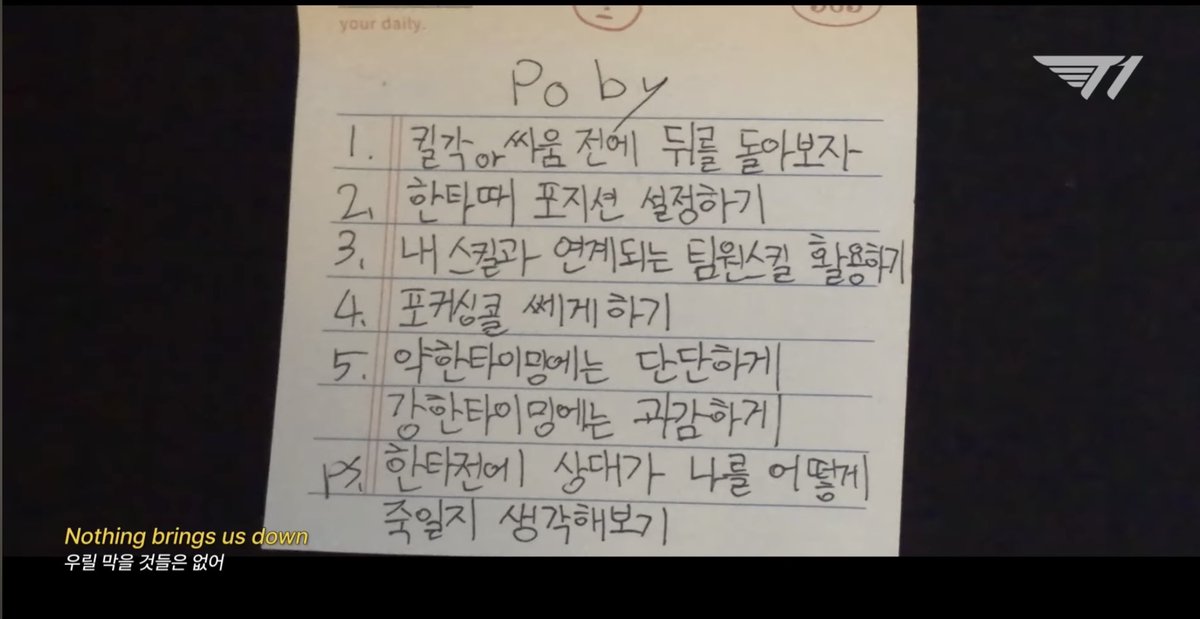 your daily.
T1
Poby
1. 킬각or싸움 전에 뒤를 돌아보자
2. 한타때 포지션 설정하기
3. 내 스킬과 연계되는 팀원스킬 활용하기
4. 포커싱콜 쎄게하기
5. 약한타이밍에는 단단하게
강한타이밍에는 과감하게
ps. 한타전에 상대가 나를 어떻게
죽일지 생각해보기
Nothing brings us down
우릴 막을 것들은 없어